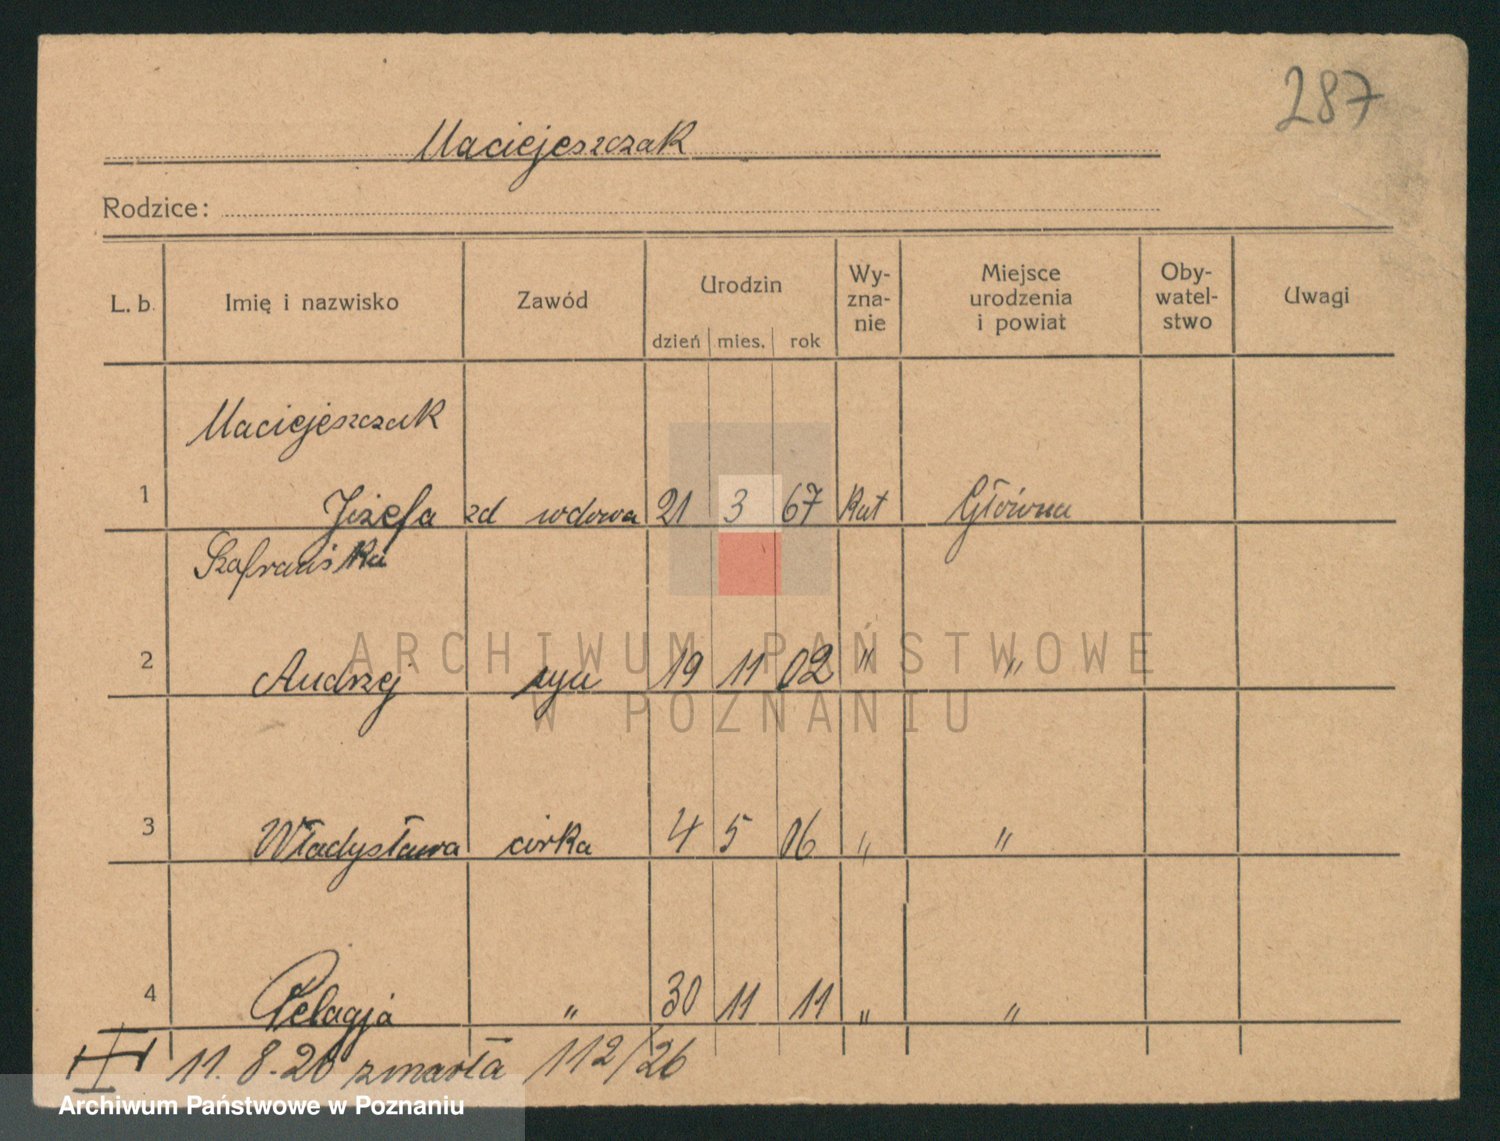 287
Maciejeszczak
Rodzice:
L. b. Imię i nazwisko Zawód Urodzin dzień mies. rok Wy-zna-nie Miejsce urodzenia i powiat Oby-watel-stwo Uwagi
Maciejeszczak
1 Józefa zd wdowa 21 3 67 Kat Główna
Szafrańska
2 Andrzej syn 19 11 02 " "
3 Władysława córka 4 5 06 " "
4 Pelagja " 30 11 11 " "
11. 8. 26 zmarła 112/26
ARCHIWUM PAŃSTWOWE
W POZNANIU
Archiwum Państwowe w Poznaniu